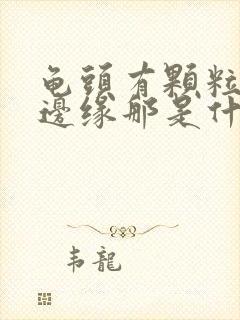 龟頭有顆粒
邊缘那是什
韦龍